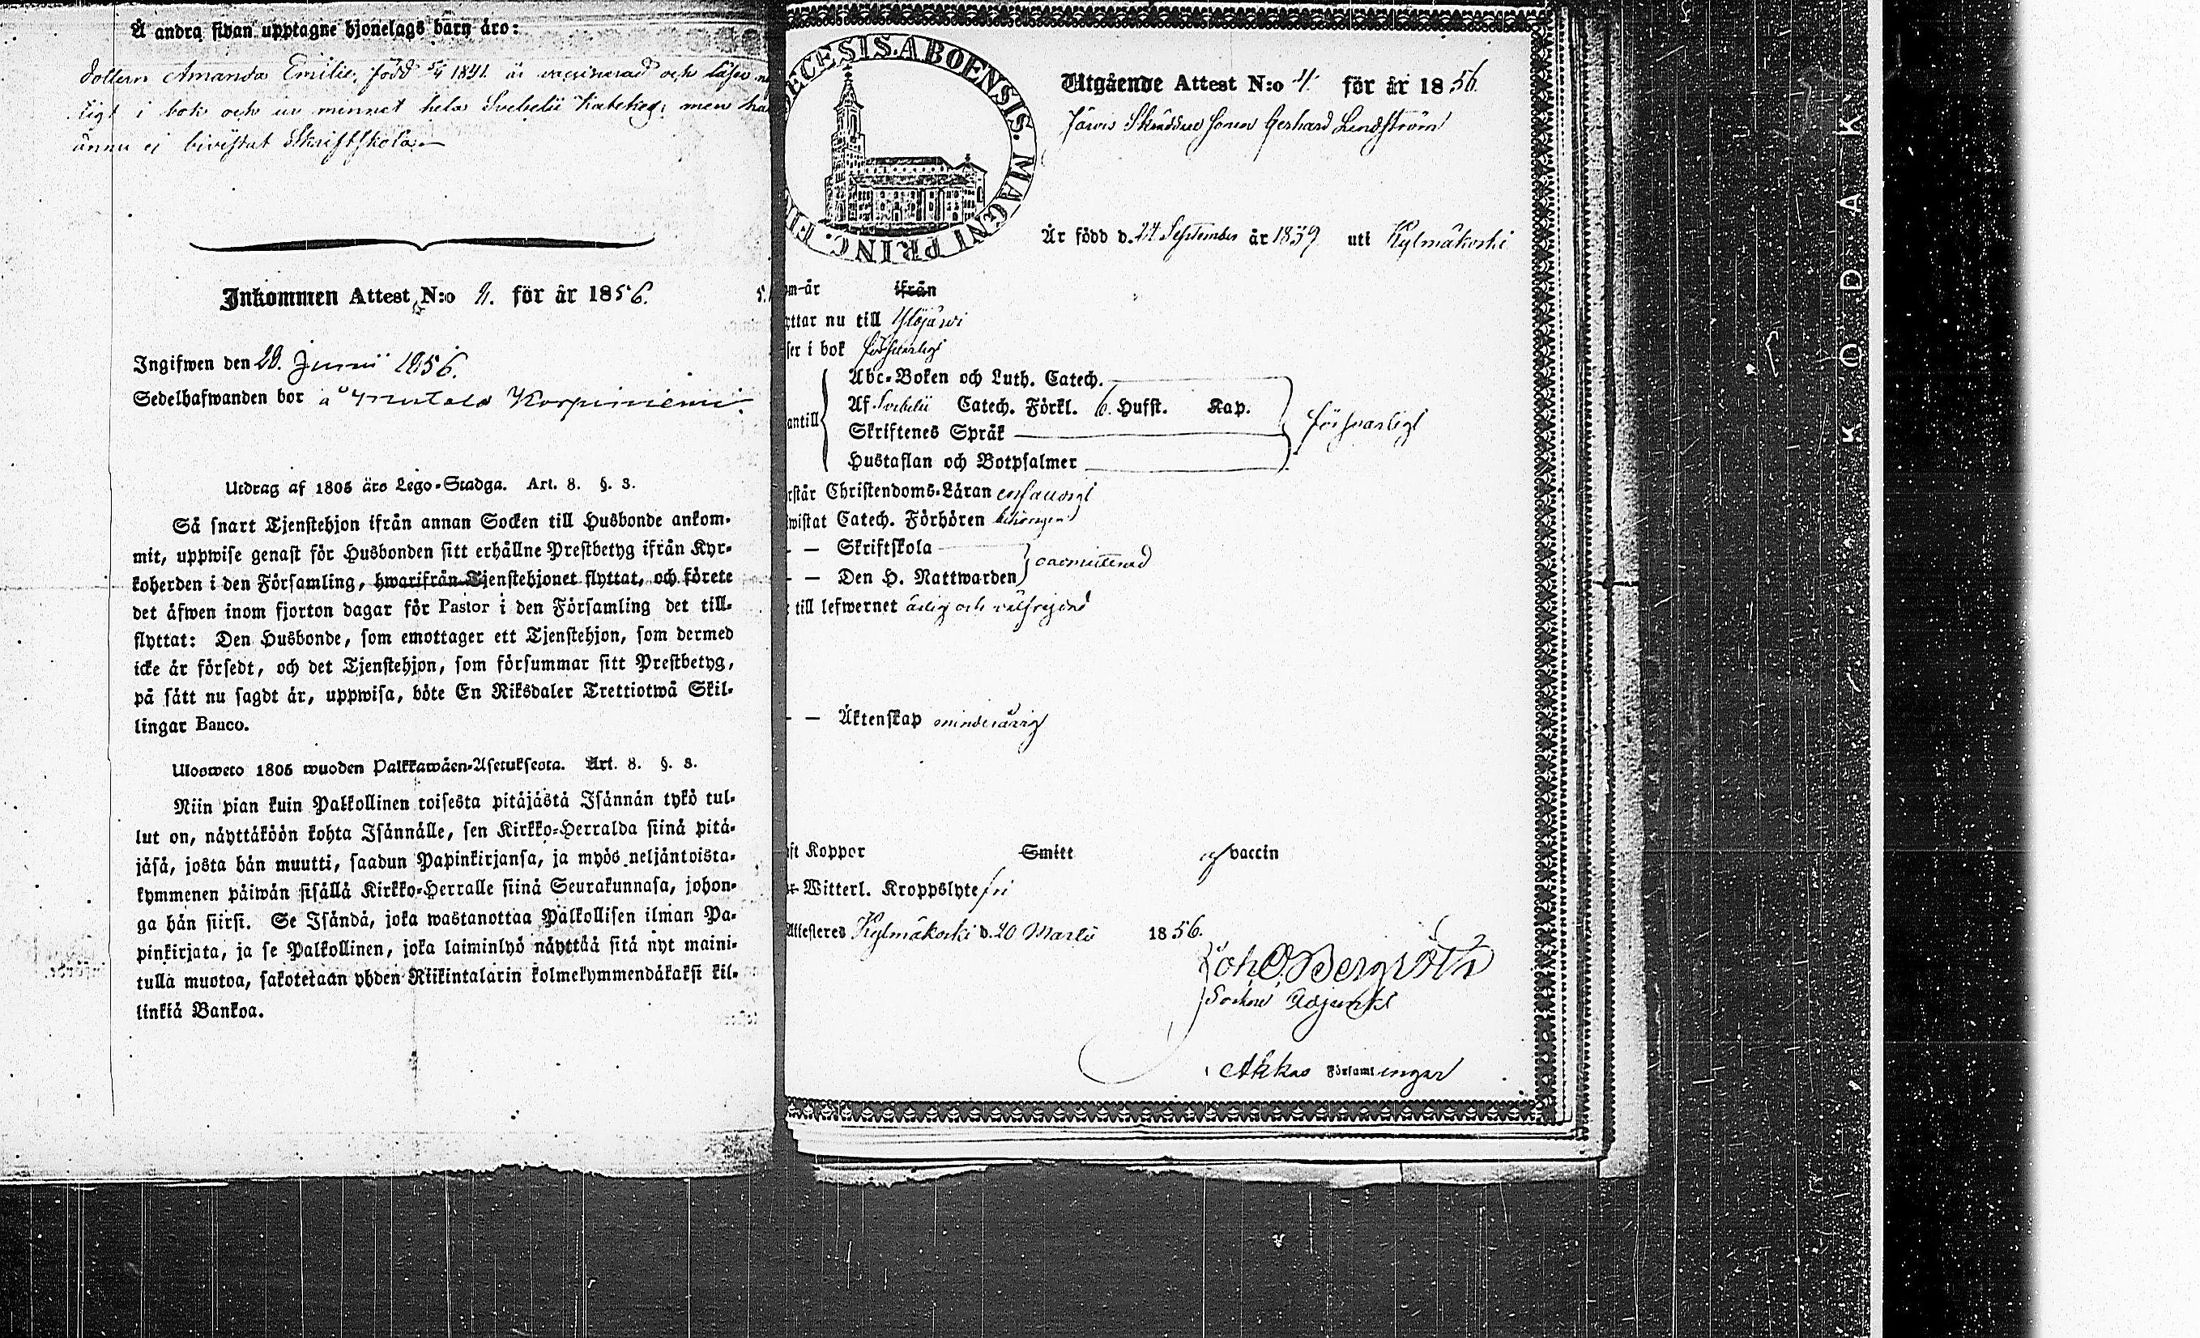 Å andra sidan upptagne hjonelags barn äro:
dottern Amanda Emilie, född 5/4 1841. är vaccinerad och läser
ligt i bok och ur minnet hela Svebelii Kateches; men har
ännu ei bivistat Skriftskola.
Inkommen Attest N:o 2. för år 1856.
Ingifwen den 29. Junii 1856.
Sedelhafwanden bor å Mutala Korpiniemi.
Utdrag af 1805 års Lego-Stadga. Art. 8. §. 3.
Så snart Tjenstehjon ifrån annan Socken till Husbonde ankom-
mit, uppwise genast för Husbonden sitt erhållne Prestbetyg ifrån Kyr-
koherden i den Församling, hwarifrån Tjenstehjonet flyttat, och förete
det äfwen inom fjorton dagar för Pastor i den Församling det till-
flyttat: Den Husbonde, som emottager ett Tjenstehjon, som dermed
icke är försedt, och det Tjenstehjon, som försummar sitt Prestbetyg,
på sätt nu sagdt är, uppwisa, böte En Riksdaler Trettiotwå Skil-
lingar Banco.
Ulosweto 1805 wuoden Palkkawäen-Asetuksesta. Art. 8. §. 3.
Niin pian kuin Palkollinen toisesta pitäjästä Isännän tykö tul-
lut on, näyttäköön kohta Isännälle, sen Kirkko-Herralda siinä pitä-
jäsä, josta hän muutti, saadun Papinkirjansa, ja myös neljäntoista-
kymmenen päiwän sisällä Kirkko-Herralle siinä Seurakunnasa, johon-
ga hän siirsi. Se Isändä, joka wastanottaa Palkollisen ilman Pa-
pinkirjata, ja se Palkollinen, joka laiminlyö näyttää sitä nyt maini-
tulla muotoa, sakotetaan yhden Riikintalarin kolmekymmendäkaksi kil-
linkiä Bankoa.
ECESIS. ABOENSIS. MAGNI PRINC. FIN
Utgående Attest N:o 4. för år 1856.
Skräddare sonen Gerhard Lindström
Är född d. 24 September år 1839 uti Kylmäkoski
om-år ifrån
ttar nu till Ylöjärvi
ser i bok försvarligt
antill
Abc-Boken och Luth. Catech.
Af Svebelii Catech. Förkl. 6. Hufst. Kap.
försvarligt
Skriftenes Språk
Hustaflan och Botpsalmer
rstår Christendoms-Läran enfaldigt
wistat Catech. Förhören behörigen
- — Skriftskola
oadmitterad
- — Den H. Nattwarden
till lefwernet ärlig och välfrejdad
- — Äktenskap minderårig
ft Koppor Smitt af vaccin
Witterl. Kroppslyte fri
Attesteres Kylmäkoski d. 20 Martii 1856.
Joh. O. Bergroth
Sockne Adjunkt
i Akkas Församlingar
KODAK